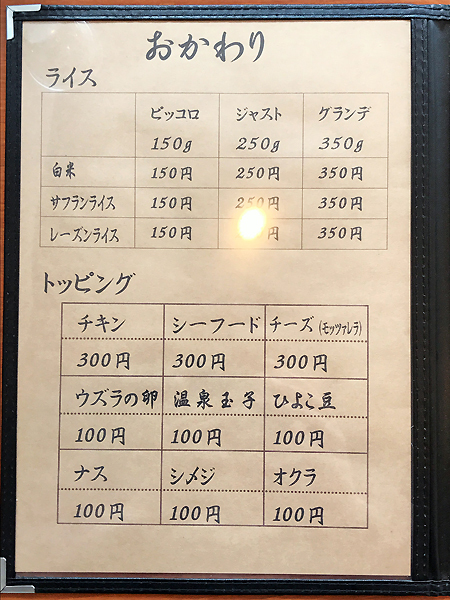 おかわり
ライス
ピッコロ ジャスト グランデ
150g 250g 350g
白米 150円 250円 350円
サフランライス 150円 250円 350円
レーズンライス 150円 円 350円
トッピング
チキン シーフード チーズ(モッツァレラ)
300円 300円 300円
ウズラの卵 温泉玉子 ひよこ豆
100円 100円 100円
ナス シメジ オクラ
100円 100円 100円